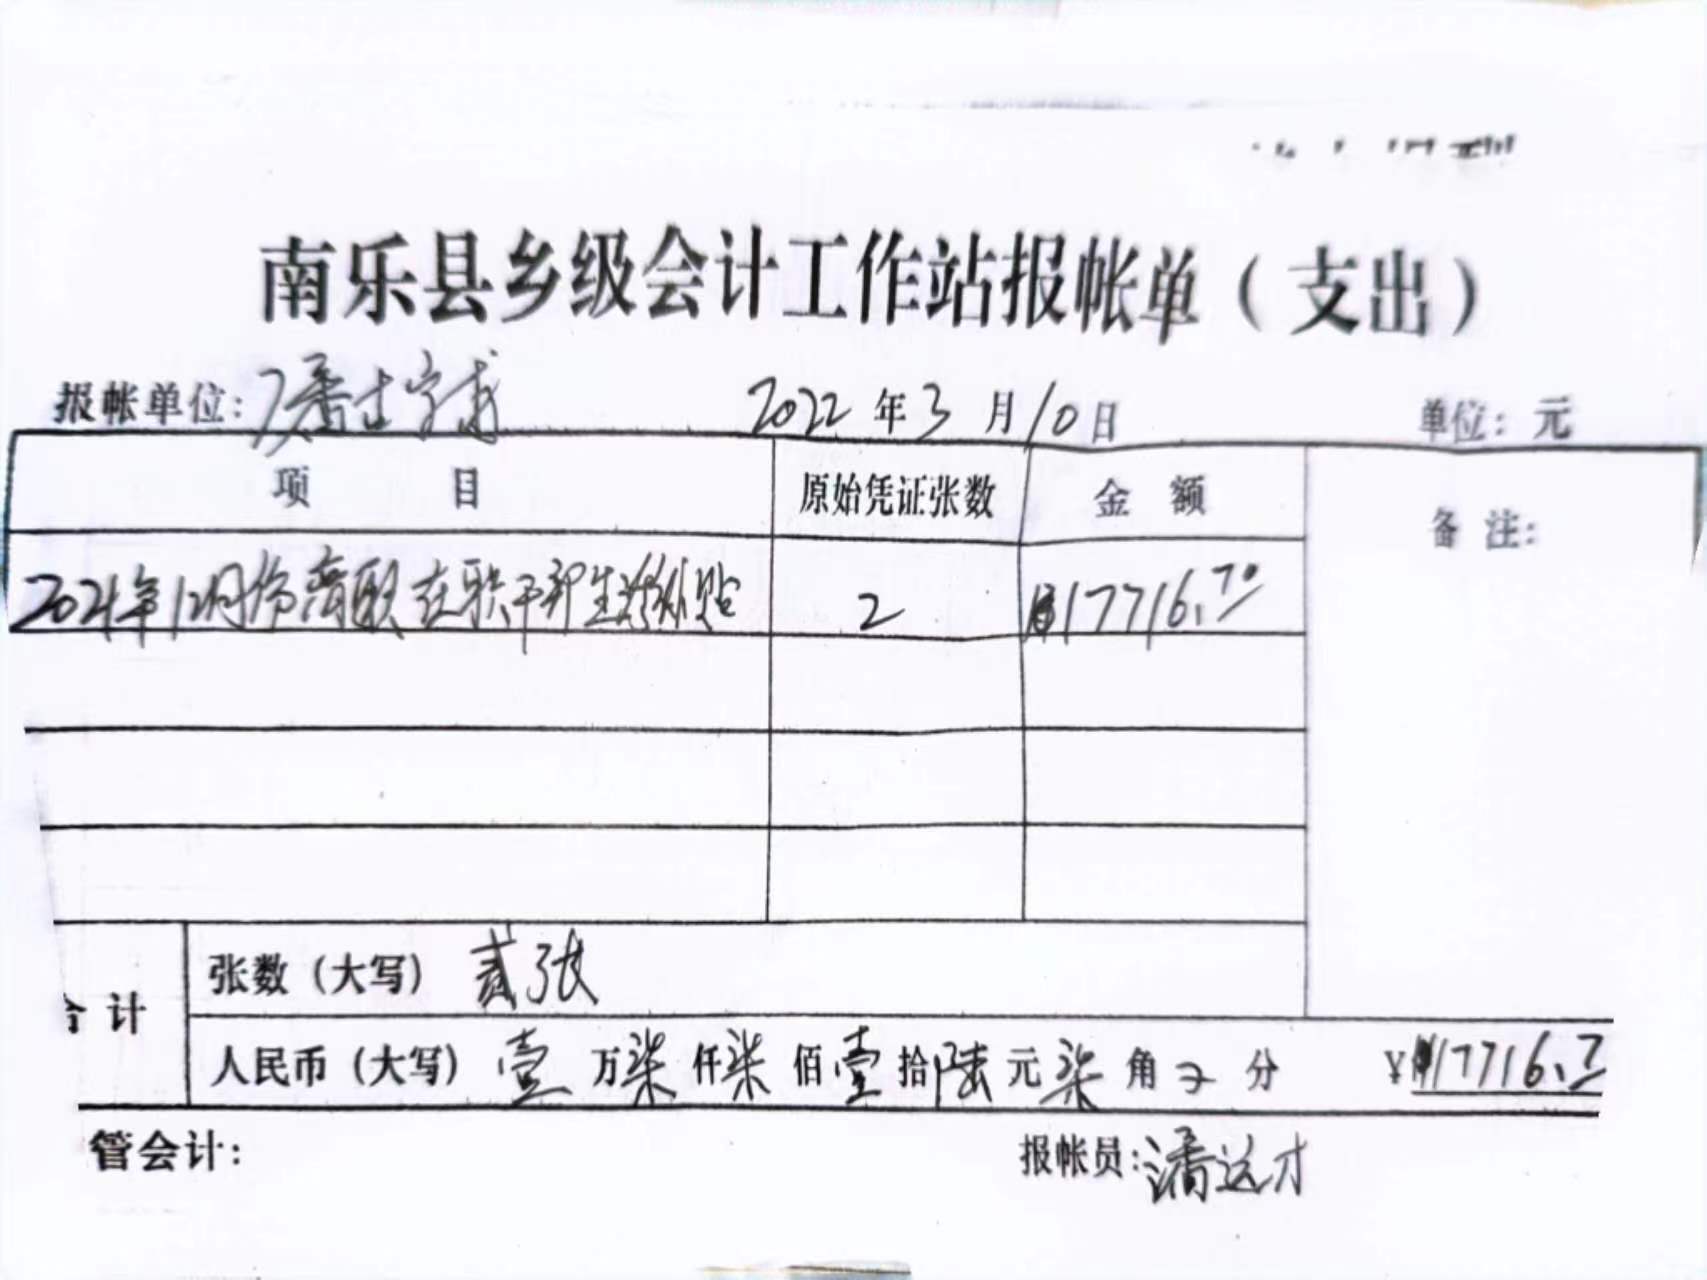 南乐县乡级会计工作站报帐单（支出）
报帐单位： 2022 年 3 月 10 日 单位：元
项 目 原始凭证张数 金 额 备 注：
2021年12月份离职在职干部生活补贴 2 17716.70
张数（大写） 贰张
合 计
人民币（大写） 壹 万 柒 仟 柒 佰 壹 拾 陆 元 柒 角 0 分 ¥ 17716.7
管会计： 报帐员：潘远才